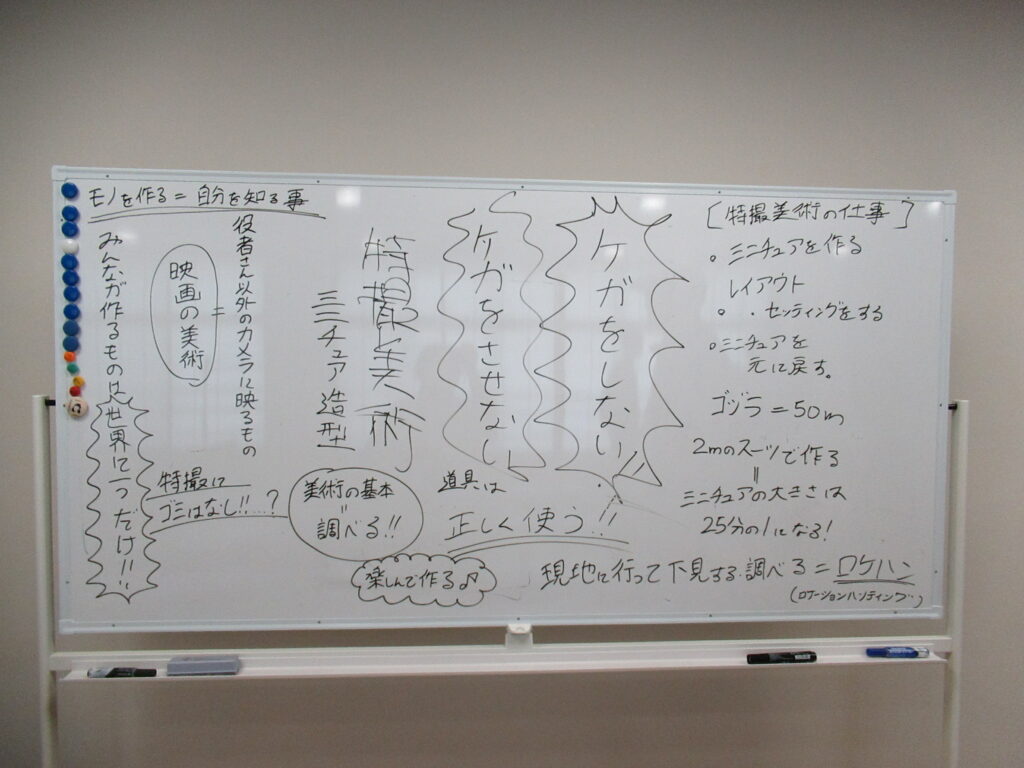 モノを作る=自分を知る事
みんなが作るものは世界に一つだけ!!!
映画の美術
=
役者さん以外のカメラに映るもの
特撮に
ゴミはなし!!…?
特撮美術
ミニチュア造型
美術の基本
=
調べる!!
楽しんで作る♪
ケガをしない
ケガをさせない
道具は
正しく使う!!
[特撮美術の仕事]
。ミニチュアを作る
レイアウト
。・セッティングをする
。ミニチュアを
元に戻す。
ゴジラ=50m
2mのスーツで作る
=
ミニチュアの大きさは
25分の1になる!
現地に行って下見する・調べる=ロケハン
(ロケーションハンティング)